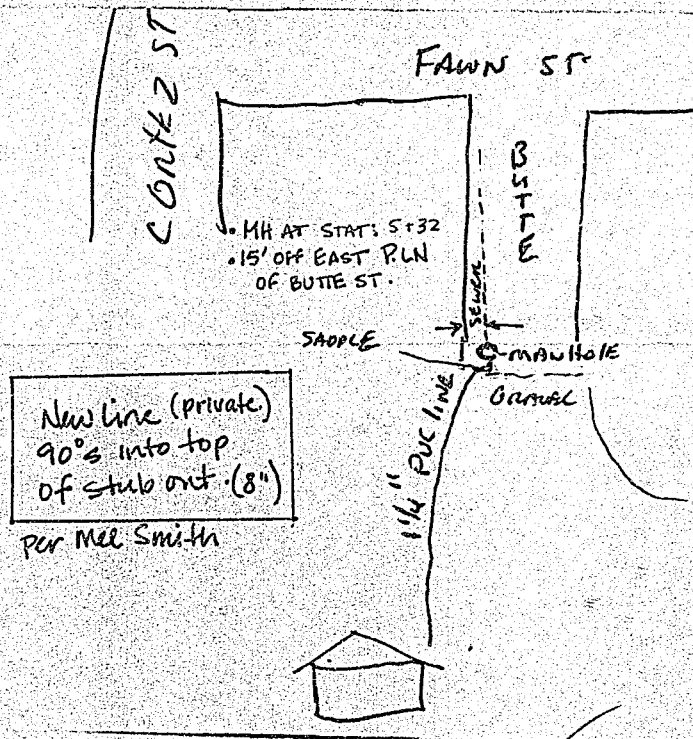 CORTEZ ST
FAWN ST
BUTTE
• MH AT STAT: 5+32
• 15' OFF EAST P.LN
OF BUTTE ST.
SEWER
SADDLE
MANHOLE
GRAVEL
New Line (private)
90°s into top
of stub out. (8")
per Mel Smith
1 1/4" PVC line